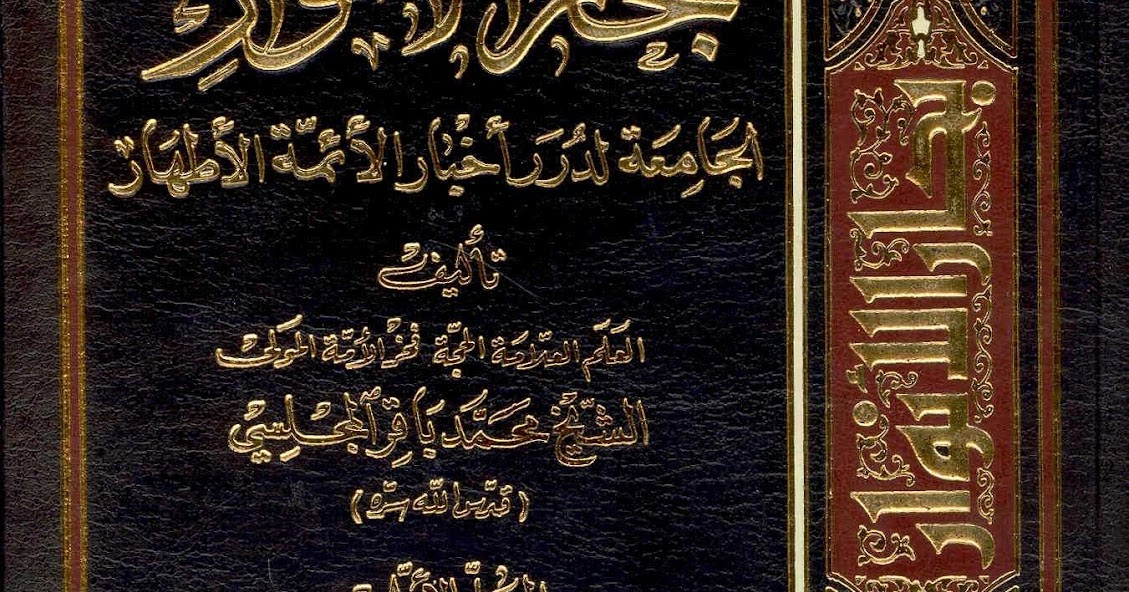 بحار الأنوار
الجَامِعَة لدُرَرِ أخْبَارِ الأَئِمَّة الأَطهَارِ
تأليف
العَلَم العَلَّامَة الحجَّة فخر الأمَّة المَولى
الشَّيخ مُحَمَّد بَاقِر المجْلِسِي
(قدّس الله سرّه)
بحار الأنوار